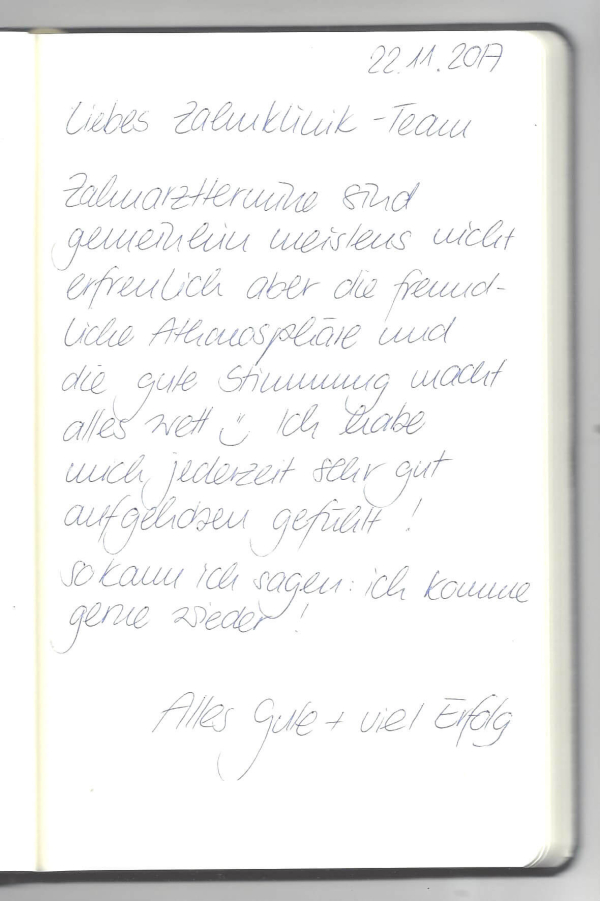 22.11.2017
Liebes Zahnklinik-Team
Zahnarzttermine sind
gemeinhin meistens nicht
erfreulich aber die freund-
liche Athmosphäre und
die gute Stimmung macht
alles wett ü Ich habe
mich jederzeit sehr gut
aufgehoben gefühlt!
so kann ich sagen: ich komme
gerne wieder!
Alles Gute + viel Erfolg